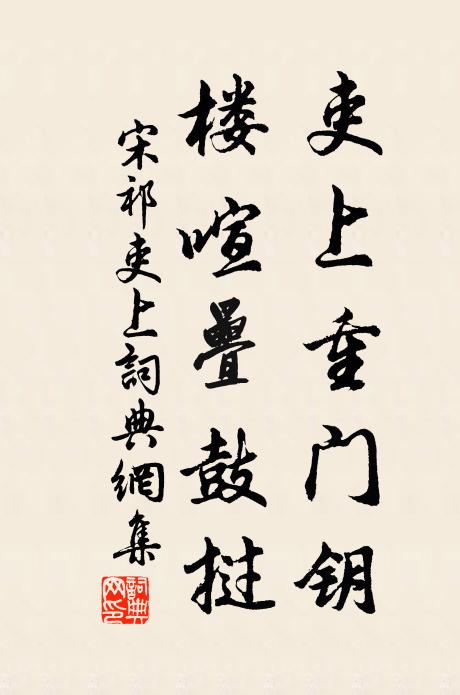 吏上重门钥
楼喧疊鼓挝
宋祁吏上詞典網集
詞典网印